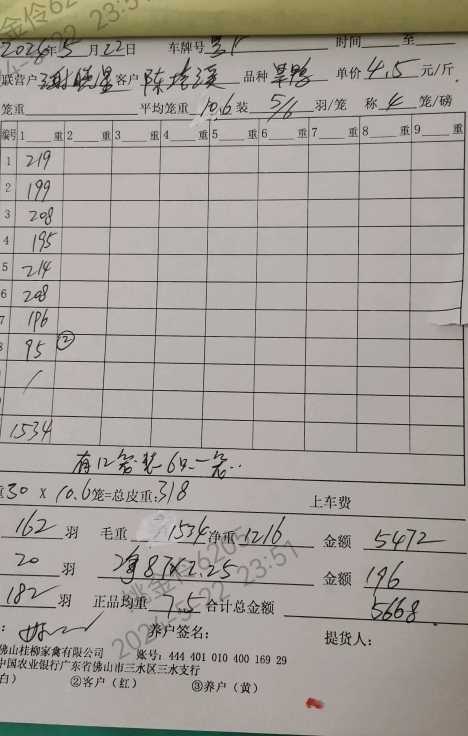 2026年5月22日 车牌号 时间 至
联营户 谢晓星 客户 陈 品种 草鸭 单价 4.5 元/斤
笼重 平均笼重 10.6 装 5/6 羽/笼 称 4 笼/磅
编号 1 重 2 重 3 重 4 重 5 重 6 重 7 重 8 重 9 重
1 219
2 199
3 208
4 195
5 214
6 208
7 196
95 ②
/
1534
有12笼装6只一笼..
30 × 10.6 笼=总皮重:318
上车费
162 羽 毛重 1534 净重 1216 金额 5472
20 羽 87×2.25 金额 196
182 羽 正品均重 7.5 合计总金额 5668
养户签名: 提货人:
佛山桂柳家禽有限公司 账号: 444 401 010 400 169 29
中国农业银行广东省佛山市三水区三水支行
白） ②客户（红） ③养户（黄）
金伶6205
2026-5-22 23:51